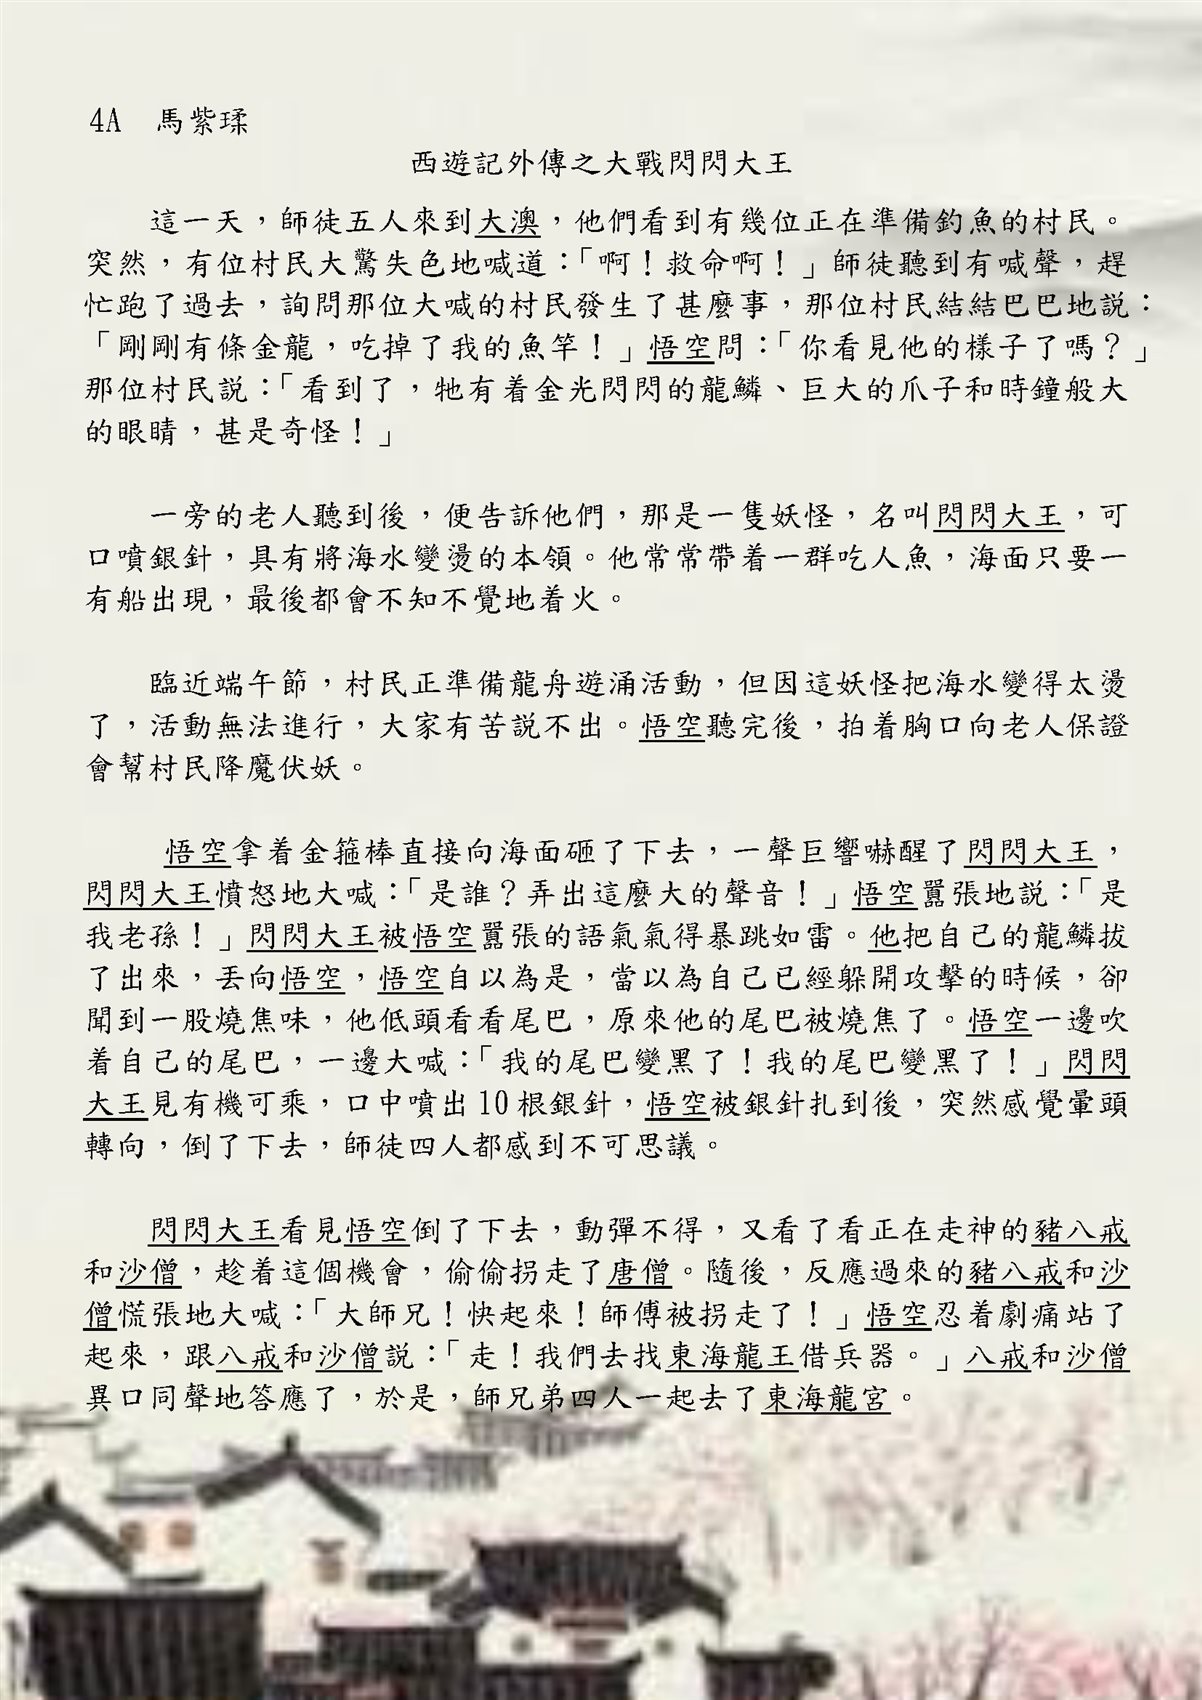 4A　馬紫瑈
西遊記外傳之大戰閃閃大王
這一天，師徒五人來到大澳，他們看到有幾位正在準備釣魚的村民。
突然，有位村民大驚失色地喊道：「啊！救命啊！」師徒聽到有喊聲，趕
忙跑了過去，詢問那位大喊的村民發生了甚麼事，那位村民結結巴巴地說：
「剛剛有條金龍，吃掉了我的魚竿！」悟空問：「你看見他的樣子了嗎？」
那位村民說：「看到了，牠有着金光閃閃的龍鱗、巨大的爪子和時鐘般大
的眼睛，甚是奇怪！」
一旁的老人聽到後，便告訴他們，那是一隻妖怪，名叫閃閃大王，可
口噴銀針，具有將海水變燙的本領。他常常帶着一群吃人魚，海面只要一
有船出現，最後都會不知不覺地着火。
臨近端午節，村民正準備龍舟遊涌活動，但因這妖怪把海水變得太燙
了，活動無法進行，大家有苦說不出。悟空聽完後，拍着胸口向老人保證
會幫村民降魔伏妖。
悟空拿着金箍棒直接向海面砸了下去，一聲巨響嚇醒了閃閃大王，
閃閃大王憤怒地大喊：「是誰？弄出這麼大的聲音！」悟空囂張地說：「是
我老孫！」閃閃大王被悟空囂張的語氣氣得暴跳如雷。他把自己的龍鱗拔
了出來，丟向悟空，悟空自以為是，當以為自己已經躲開攻擊的時候，卻
聞到一股燒焦味，他低頭看看尾巴，原來他的尾巴被燒焦了。悟空一邊吹
着自己的尾巴，一邊大喊：「我的尾巴變黑了！我的尾巴變黑了！」閃閃
大王見有機可乘，口中噴出 10 根銀針，悟空被銀針扎到後，突然感覺暈頭
轉向，倒了下去，師徒四人都感到不可思議。
閃閃大王看見悟空倒了下去，動彈不得，又看了看正在走神的豬八戒
和沙僧，趁着這個機會，偷偷拐走了唐僧。隨後，反應過來的豬八戒和沙
僧慌張地大喊：「大師兄！快起來！師傅被拐走了！」悟空忍着劇痛站了
起來，跟八戒和沙僧說：「走！我們去找東海龍王借兵器。」八戒和沙僧
異口同聲地答應了，於是，師兄弟四人一起去了東海龍宮。